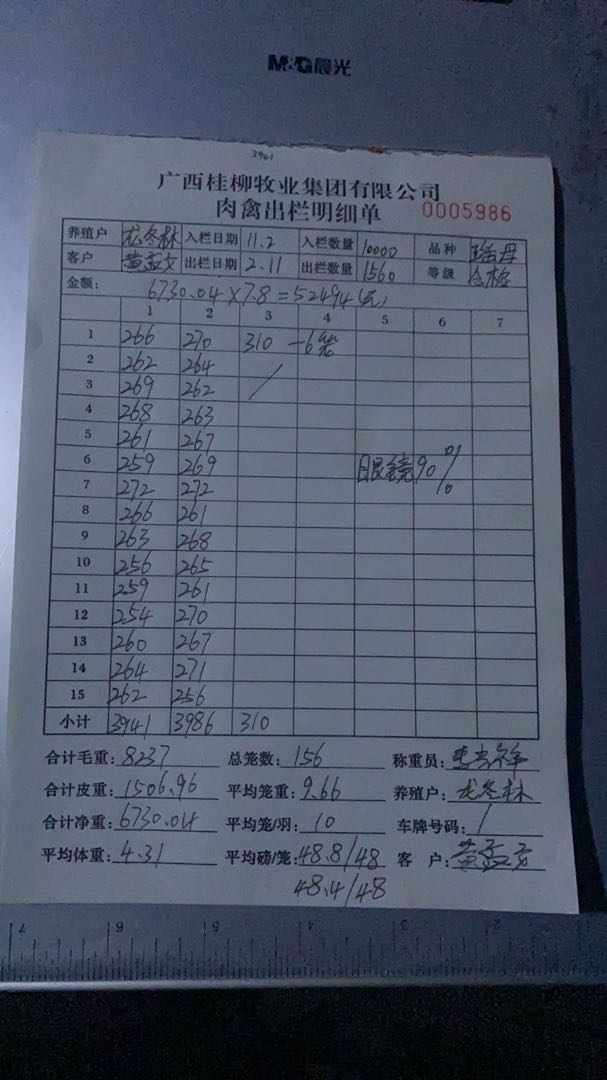 M&G晨光
3941
广西桂柳牧业集团有限公司
肉禽出栏明细单 0005986
养殖户 龙冬林 入栏日期 11.2 入栏数量 10000 品种
客户 黄孟文 出栏日期 2.11 出栏数量 1560 等级 合格
金额: 6730.04×7.8=52494(元)
1 2 3 4 5 6 7
1 266 270 310 -6笼
2 262 264
3 269 262 /
4 268 263
5 261 267
6 259 269 眼镜90%
7 272 272 %
8 266 261
9 263 268
10 256 265
11 259 261
12 254 270
13 260 267
14 264 271
15 262 256
小计 3941 3986 310
合计毛重: 8237 总笼数: 156 称重员:
合计皮重: 1506.96 平均笼重: 9.66 养殖户: 龙冬林
合计净重: 6730.04 平均笼/羽: 10 车牌号码: /
平均体重: 4.31 平均磅/笼: 48.8/48 客 户: 黄孟文
48.4/48
7 6 5 4 3 2 1